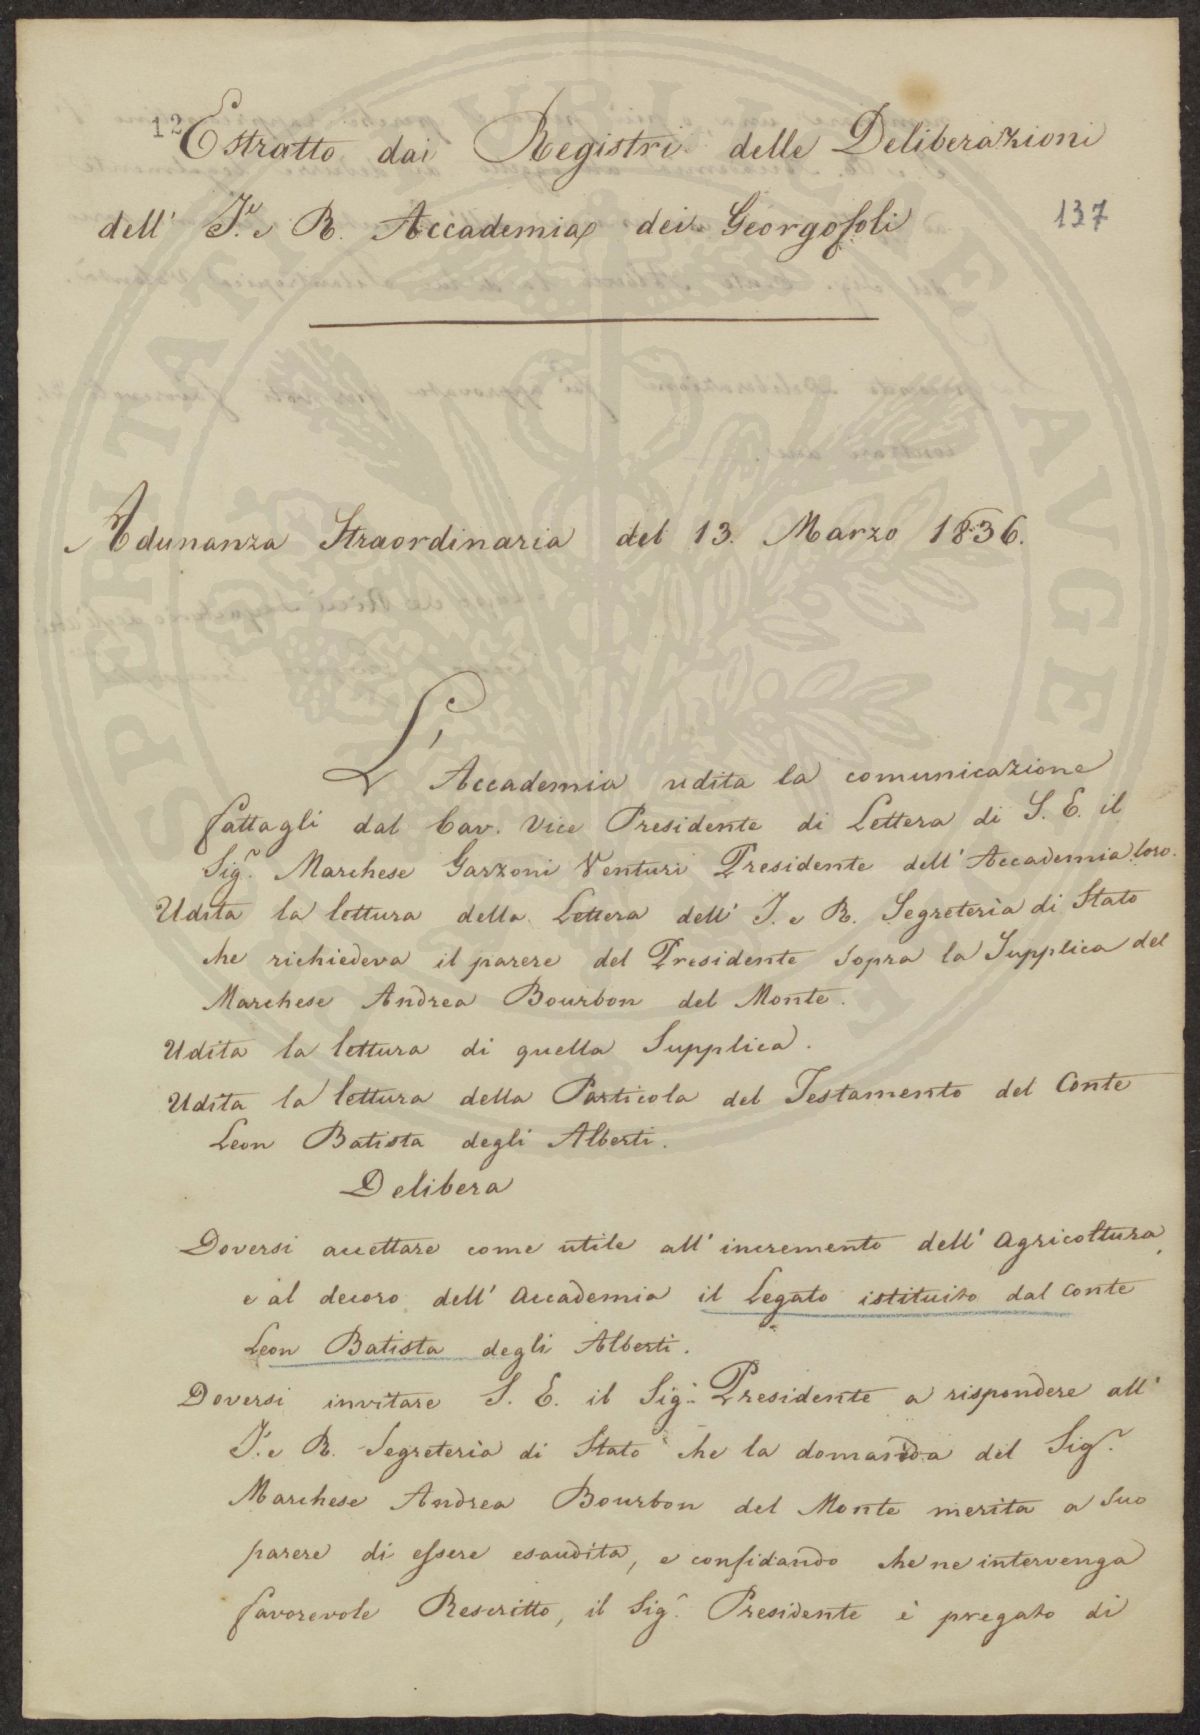 12
Estratto dai Registri delle Deliberazioni
dell' I. e R. Accademia dei Georgofoli
137
Adunanza Straordinaria del 13. Marzo 1836.
L' Accademia udita la comunicazione
fattagli dal Cav. Vice Presidente di Lettera di S. E. il
Sigr. Marchese Garzoni Venturi Presidente dell' Accademia loro.
Udita la lettura della Lettera dell' I. e R. Segreteria di Stato
che richiedeva il parere del Presidente sopra la Supplica del
Marchese Andrea Bourbon del Monte.
Udita la lettura di quella Supplica.
Udita la lettura della Particola del Testamento del Conte
Leon Batista degli Alberti.
Delibera
Doversi accettare come utile all' incremento dell' Agricoltura,
e al decoro dell' Accademia il Legato istituito dal Conte
Leon Batista degli Alberti.
Doversi invitare S. E. il Sigr. Presidente a rispondere all'
I. e R. Segreteria di Stato che la domanda del Sigr.
Marchese Andrea Bourbon del Monte merita a suo
parere di essere esaudita, e confidando che ne intervenga
favorevole Rescritto, il Sigr. Presidente è pregato di